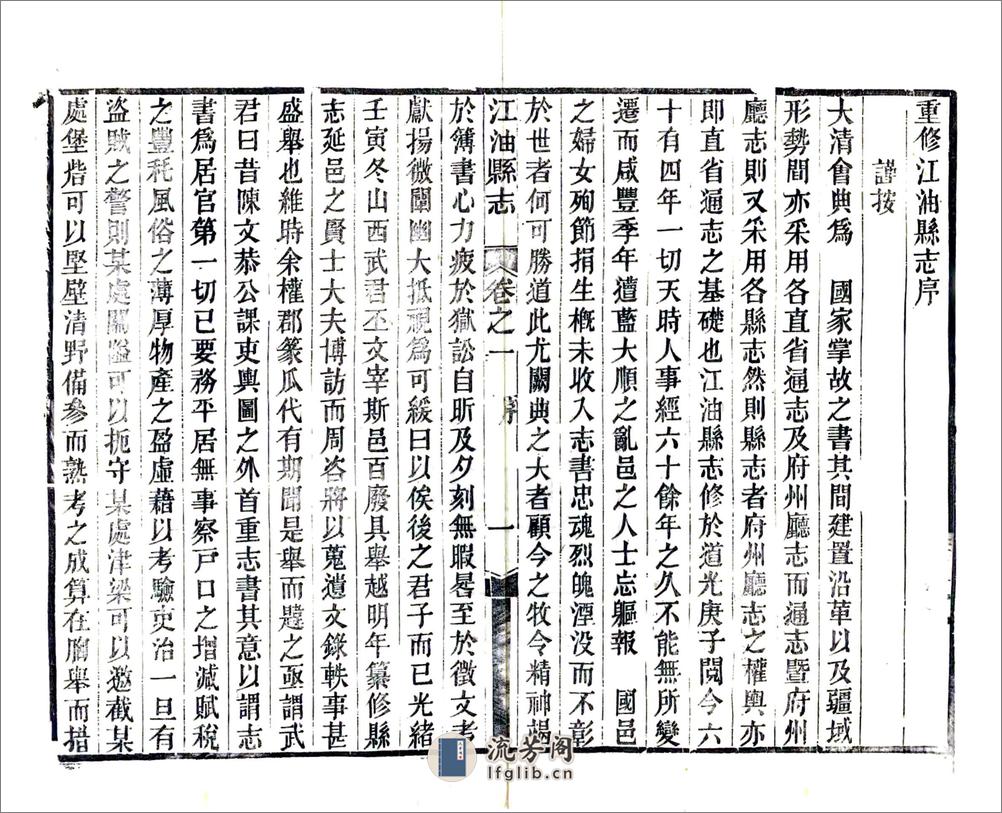 重修江油縣志序
謹按
大清會典爲　國家掌故之書其間建置沿革以及疆域
形勢間亦采用各直省通志及府州廳志而通志暨府州
廳志則又采用各縣志然則縣志者府州廳志之權輿亦
即直省通志之基礎也江油縣志修於道光庚子閱今六
十有四年一切天時人事經六十餘年之久不能無所變
遷而咸豐季年遭藍大順之亂邑之人士忘軀報　國邑
之婦女殉節捐生槪未收入志書忠魂烈魄湮没而不彰
於世者何可勝道此尤闕典之大者顧今之牧令精神竭
江油縣志　卷之一　序　一
於簿書心力疲於獄訟自昕及夕刻無暇晷至於徵文考
獻揚微闡幽大抵視爲可緩曰以俟後之君子而已光緒
壬寅冬山西武君丕文宰斯邑百廢具舉越明年纂修縣
志延邑之賢士大夫博訪而周咨將以蒐遺文錄軼事甚
盛舉也維時余權郡篆瓜代有期聞是舉而韙之亟謂武
君曰昔陳文恭公課吏輿圖之外首重志書其意以謂志
書爲居官第一切己要務平居無事察戸口之增減賦稅
之豐耗風俗之薄厚物產之盈虛藉以考驗吏治一旦有
盜賊之警則某處關隘可以扼守某處津梁可以邀截某
處堡砦可以堅壁清野備參而熟考之成算在胸舉而措
流芳阁
lfglib.cn